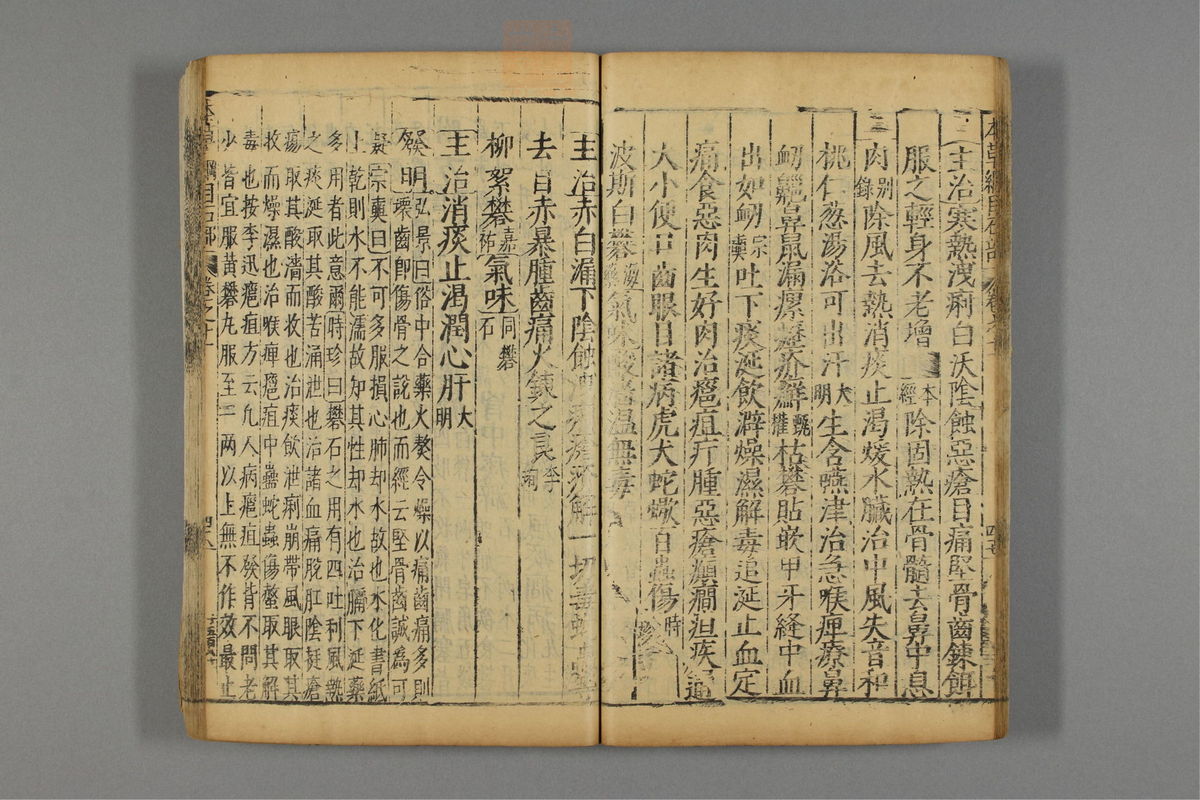 主治寒熱洩痢白沃陰蝕惡瘡目痛堅骨齒鍊餌
服之輕身不老增年本經除固熱在骨髓去鼻中息
肉别錄除風去熱消痰止渴煖水臟治中風失音和
桃仁葱湯浴可出汗大明生含嚥津治急喉痺療鼻
衂齆鼻鼠漏瘰癧疥癬甄權枯礬貼嵌甲牙縫中血
出如衂宗奭吐下痰涎飲澼燥濕解毒追涎止血定
痛食惡肉生好肉治癰疽疔腫惡瘡癲癇疸疾通
大小便口齒眼目諸病虎犬蛇蠍百蟲傷時珍
波斯白礬海藥氣味酸澀溫無毒
主治赤白漏下陰蝕 解一切毒蛇蟲等
去目赤暴腫齒痛火鍊之良李珣
柳絮礬嘉祐氣味同礬石
主治消痰止渴潤心肝大明
發明弘景曰俗中合藥火熬令燥以療齒痛多則
壞齒卽傷骨之說也而經云堅骨齒誠爲可
疑宗奭曰不可多服損心肺却水故也水化書紙
上乾則水不能濡故知其性却水也治膈下涎藥
多用者此意爾時珍曰礬石之用有四吐利風熱
之痰涎取其酸苦涌泄也治諸血痛脫肛陰挺瘡
瘍取其酸濇而收也治痰飲泄痢崩帶風眼取其
收而燥濕也治喉痺癰疽中蠱蛇蟲傷螫取其解
毒也按李迅癰疽方云凡人病癰疽發背不問老
少皆宜服黃礬丸服至一兩以上無不作效最止